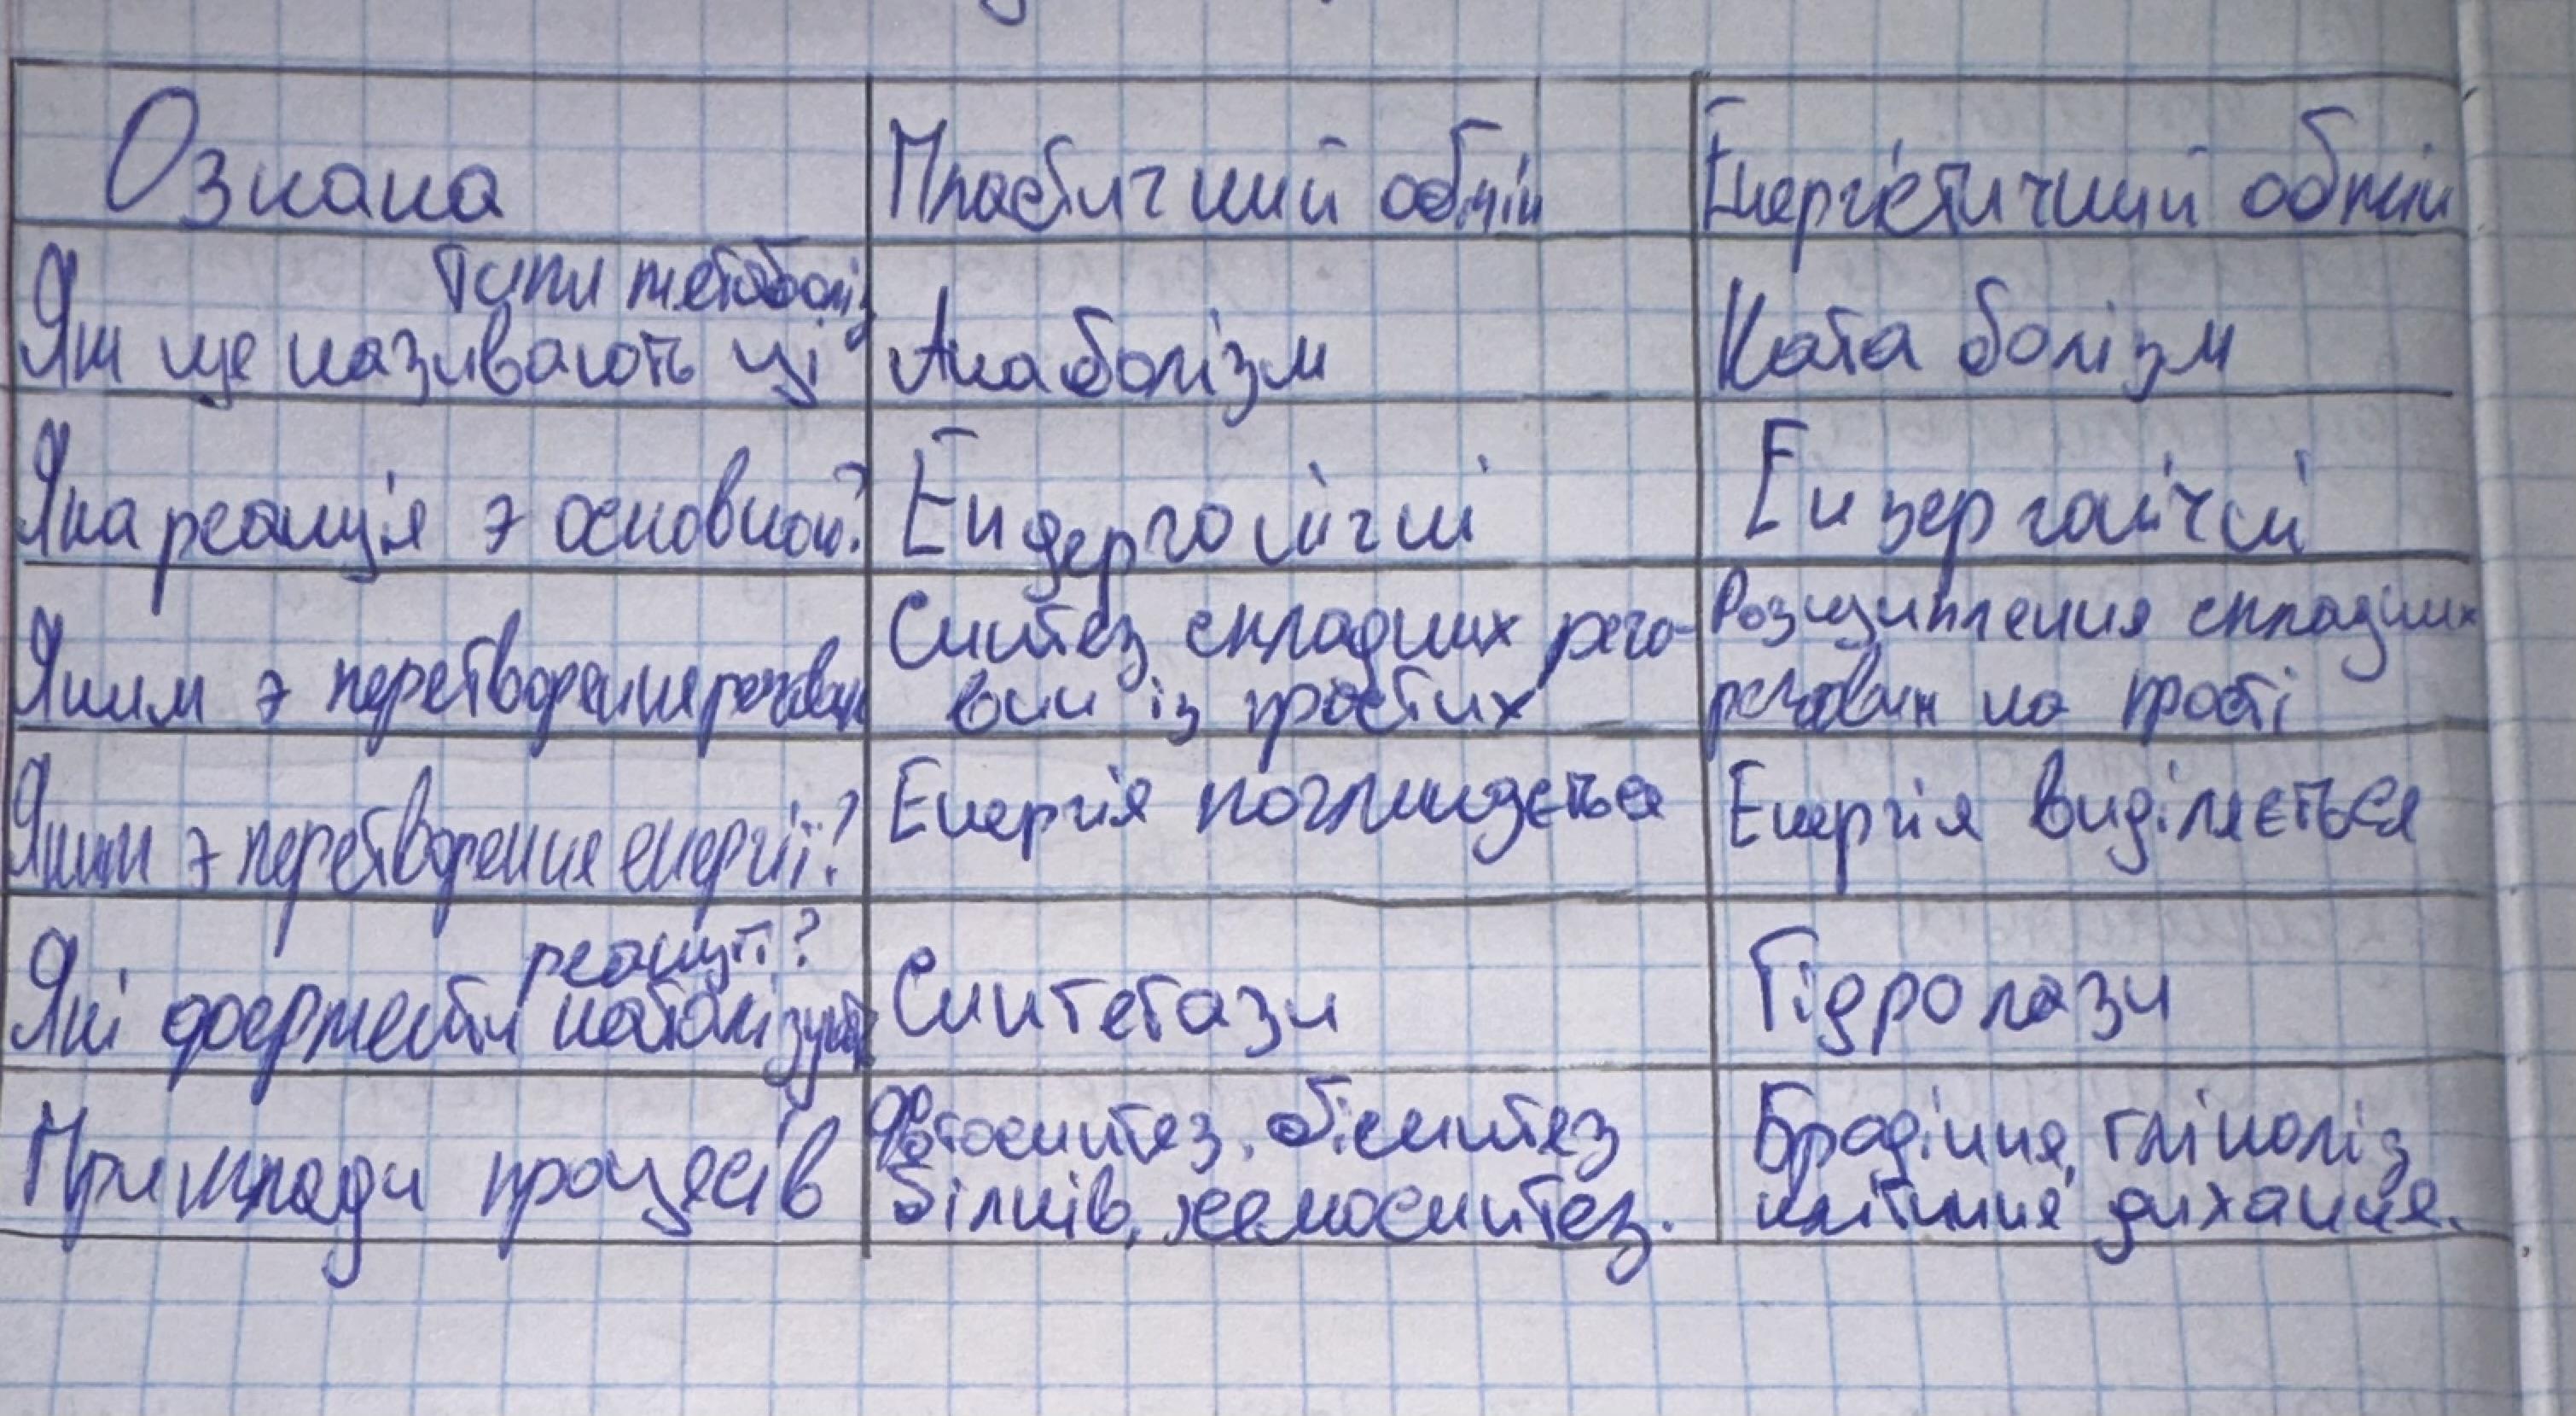 Ознака Пластичний обмін Енергетичний обмін
Типи метаболіз
Як ще називають ці Анаболізм Катаболізм
Яка реакція э основною? Ендергонічні Екзергонічні
Яким э перетворення речовин Синтез складних речо- Розщиплення складних
вин із простих речовин на прості
Яким э перетворення енергії? Енергія поглинається Енергія виділяється
реакції?
Які ферменти каталізують Синтетази Гідролази
Приклади процесів Фотосинтез, біосинтез Бродіння, гліколіз
білків, хемосинтез. клітинне дихання.